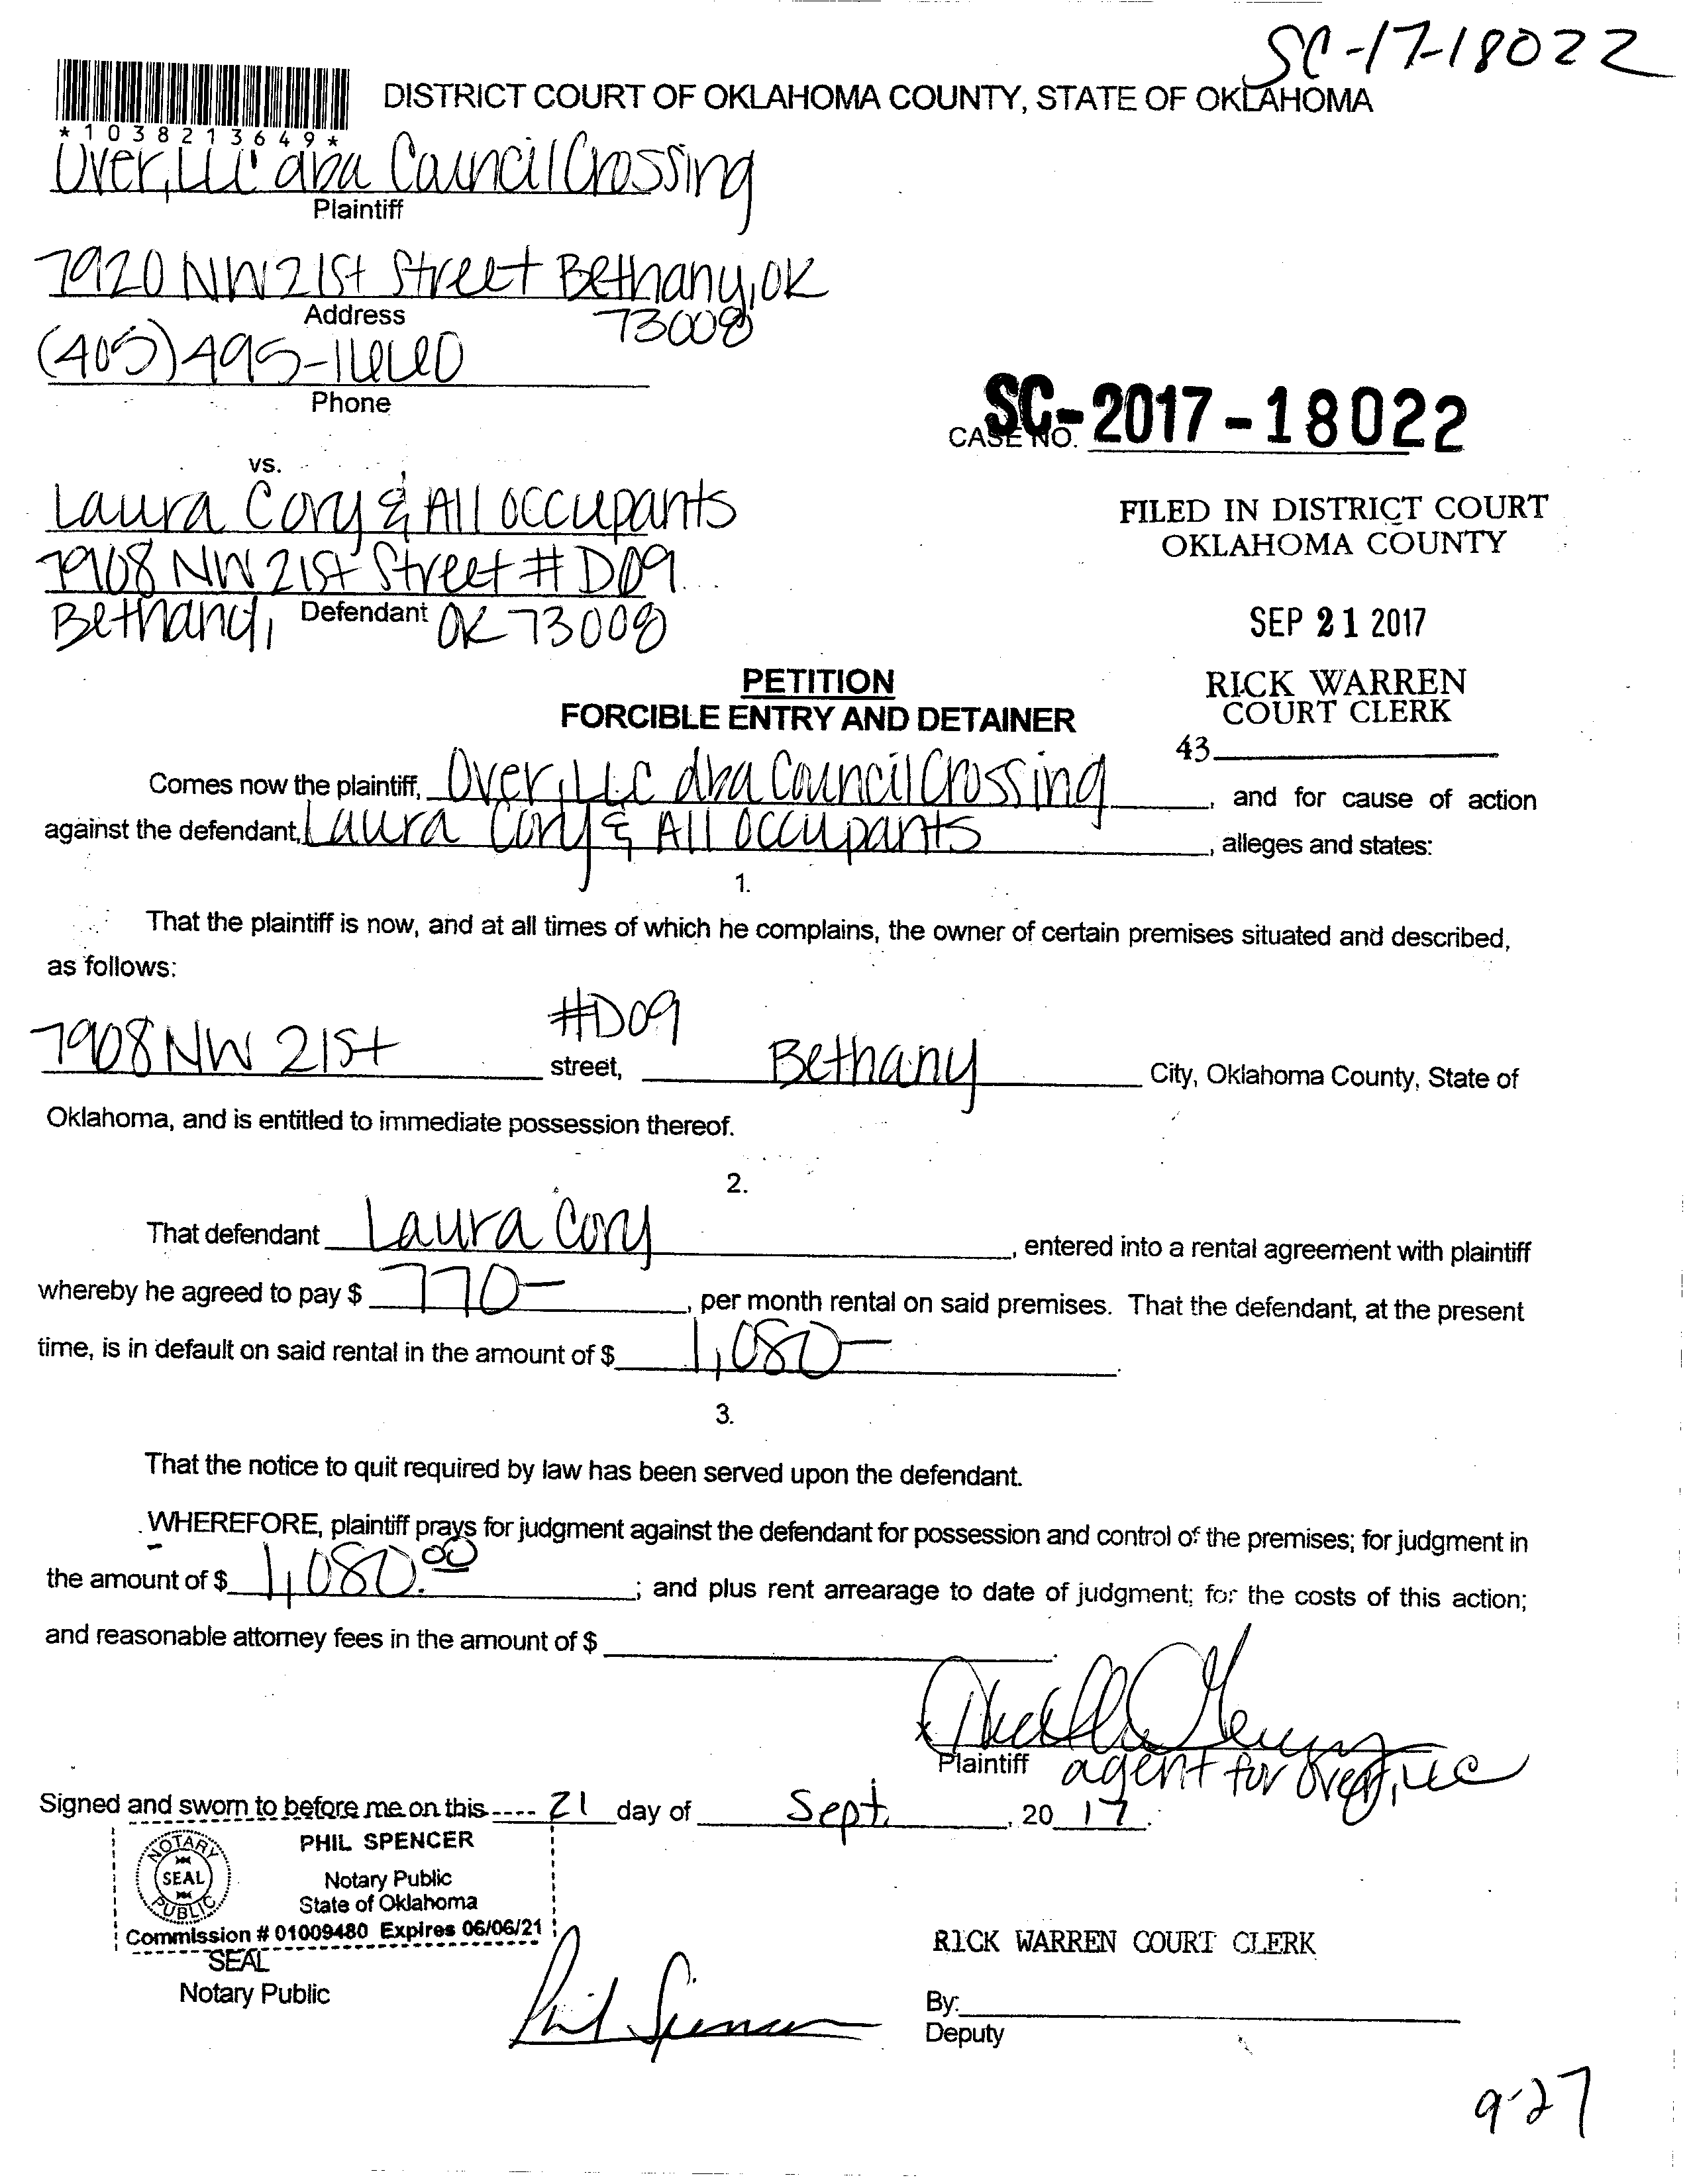 SC-17-18022
DISTRICT COURT OF OKLAHOMA COUNTY, STATE OF OKLAHOMA
*1038213649*
Over, LLC dba Council Crossing
Plaintiff
7920 NW 21st Street Bethany, OK
Address
73008
(405) 495-1660
Phone
CASE NO. SC-2017-18022
vs.
Laura Cory & All occupants
7908 NW 21st Street # D09
Bethany, Defendant OK 73008
FILED IN DISTRICT COURT
OKLAHOMA COUNTY
SEP 21 2017
RICK WARREN
COURT CLERK
43
PETITION
FORCIBLE ENTRY AND DETAINER
Comes now the plaintiff, Over, LLC dba Council Crossing, and for cause of action
against the defendant, Laura Cory & All occupants, alleges and states:
1.
That the plaintiff is now, and at all times of which he complains, the owner of certain premises situated and described,
as follows:
#D09
7908 NW 21st street, Bethany City, Oklahoma County, State of
Oklahoma, and is entitled to immediate possession thereof.
2.
That defendant Laura Cory, entered into a rental agreement with plaintiff
whereby he agreed to pay $ 770-, per month rental on said premises. That the defendant, at the present
time, is in default on said rental in the amount of $ 1,080-.
3.
That the notice to quit required by law has been served upon the defendant.
WHEREFORE, plaintiff prays for judgment against the defendant for possession and control of the premises; for judgment in
the amount of $ 1,080.00; and plus rent arrearage to date of judgment; for the costs of this action;
and reasonable attorney fees in the amount of $
x
Plaintiff agent for Over, LLC
Signed and sworn to before me on this 21 day of Sept., 2017.
NOTARY PUBLIC SEAL
PHIL SPENCER
Notary Public
State of Oklahoma
Commission # 01009480 Expires 06/06/21
SEAL
Notary Public
Phil Spencer
RICK WARREN COURT CLERK
By:
Deputy
9-27